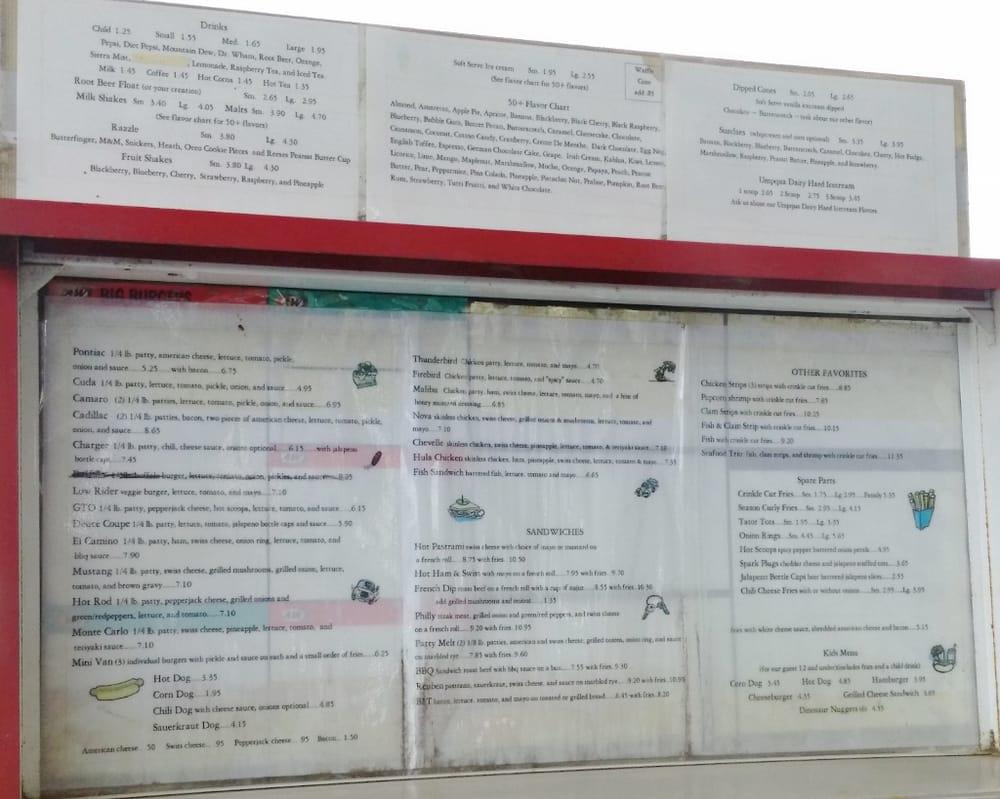 Drinks
Child 1.25 Small 1.55 Med. 1.65 Large 1.95
Pepsi, Diet Pepsi, Mountain Dew, Dr. Wham, Root Beer, Orange,
Sierra Mist, Lemonade, Raspberry Tea, and Iced Tea
Milk 1.45 Coffee 1.45 Hot Cocoa 1.45 Hot Tea 1.35
Root Beer Float (or your creation) Sm. 2.65 Lg. 2.95
Milk Shakes Sm 3.40 Lg. 4.05 Malts Sm. 3.90 Lg. 4.70
(See flavor chart for 50+ flavors)
Razzle Sm. 3.80 Lg. 4.30
Butterfinger, M&M, Snickers, Heath, Oreo Cookie Pieces and Reeses Peanut Butter Cup
Fruit Shakes Sm. 3.80 Lg. 4.30
Blackberry, Blueberry, Cherry, Strawberry, Raspberry, and Pineapple
Soft Serve Ice cream Sm. 1.95 Lg. 2.55
(See flavor chart for 50+ flavors)
Waffle
Cone
add .85
50+ Flavor Chart
Almond, Amaretto, Apple Pie, Apricot, Banana, Blackberry, Black Cherry, Black Raspberry,
Blueberry, Bubble Gum, Butter Pecan, Butterscotch, Caramel, Cheesecake, Chocolate,
Cinnamon, Coconut, Cotton Candy, Cranberry, Creme De Menthe, Dark Chocolate, Egg Nog,
English Toffee, Espresso, German Chocolate Cake, Grape, Irish Cream, Kahlua, Kiwi, Lemon,
Licorice, Lime, Mango, Maplenut, Marshmallow, Mocha, Orange, Papaya, Peach, Peanut
Butter, Pear, Peppermint, Pina Colada, Pineapple, Pistachio Nut, Praline, Pumpkin, Root Beer
Rum, Strawberry, Tutti Frutti, and White Chocolate.
Dipped Cones Sm. 2.05 Lg. 2.65
Soft Serve vanilla icecream dipped
Chocolate - Butterscotch - (ask about our other flavor)
Sundaes (whipcream and nuts optional) Sm. 3.35 Lg. 3.95
Banana, Blackberry, Blueberry, Butterscotch, Caramel, Chocolate, Cherry, Hot Fudge,
Marshmallow, Raspberry, Peanut Butter, Pineapple, and Strawberry.
Umpqua Dairy Hard Icecream
1 scoop 2.05 2 Scoop 2.75 3 Scoop 3.45
Ask us about our Umpqua Dairy Hard Icecream Flavors
BIG BURGERS
Pontiac 1/4 lb. patty, american cheese, lettuce, tomato, pickle,
onion and sauce.....5.25 .... with bacon.....6.75
Cuda 1/4 lb. patty, lettuce, tomato, pickle, onion, and sauce.....4.95
Camaro (2) 1/4 lb. patties, lettuce, tomato, pickle, onion, and sauce.....6.95
Cadillac (2) 1/4 lb. patties, bacon, two pieces of american cheese, lettuce, tomato, pickle,
onion, and sauce.....8.65
Charger 1/4 lb. patty, chili, cheese sauce, onions optional....6.15 .... with jalapeno
bottle caps.....7.45
burger, lettuce, tomato, onion, pickles, and sauce
Low Rider veggie burger, lettuce, tomato, and mayo.....7.10
GTO 1/4 lb. patty, pepperjack cheese, hot scoops, lettuce, tomato, and sauce.....6.15
Deuce Coupe 1/4 lb. patty, lettuce, tomato, jalapeno bottle caps and sauce.....5.90
El Camino 1/4 lb. patty, ham, swiss cheese, onion ring, lettuce, tomato, and
bbq sauce.....7.90
Mustang 1/4 lb. patty, swiss cheese, grilled mushrooms, grilled onion, lettuce,
tomato, and brown gravy.....7.10
Hot Rod 1/4 lb. patty, pepperjack cheese, grilled onions and
green/redpeppers, lettuce, and tomato.....7.10
Monte Carlo 1/4 lb. patty, swiss cheese, pineapple, lettuce, tomato, and
teriyaki sauce.....7.10
Mini Van (3) individual burgers with pickle and sauce on each and a small order of fries....6.25
Hot Dog....3.35
Corn Dog....1.95
Chili Dog with cheese sauce, onions optional....4.85
Sauerkraut Dog....4.15
American cheese.. 50 Swiss cheese... 95 Pepperjack cheese... 95 Bacon... 1.50
Thunderbird Chicken patty, lettuce, tomato, and mayo.....4.70
Firebird Chicken patty, lettuce, tomato, and "spicy" sauce.....4.70
Malibu Chicken patty, ham, swiss cheese, lettuce, tomato, mayo, and a hint of
honey mustard dressing.....6.85
Nova skinless chicken, swiss cheese, grilled onions & mushrooms, lettuce, tomato, and
mayo.....7.10
Chevelle skinless chicken, swiss cheese, pineapple, lettuce, tomato, & teriyaki sauce....7.10
Hula Chicken skinless chicken, ham, pineapple, swiss cheese, lettuce, tomato & mayo.....7.35
Fish Sandwich battered fish, lettuce, tomato and mayo.....4.65
SANDWICHES
Hot Pastrami swiss cheese with choice of mayo or mustard on
a french roll.....8.75 with fries. 10.50
Hot Ham & Swiss with mayo on a french roll.....7.95 with fries. 9.70
French Dip roast beef on a french roll with a cup of aujus.....8.55 with fries. 10.30
add grilled mushrooms and onions.....1.35
Philly steak meat, grilled onion and green/red peppers, and swiss cheese
on a french roll.....9.20 with fries. 10.95
Patty Melt (2) 1/8 lb. patties, american and swiss cheese, grilled onions, onion ring, and sauce
on marbled rye.....7.85 with fries. 9.60
BBQ Sandwich roast beef with bbq sauce on a bun.....7.55 with fries. 9.30
Reuben pastrami, sauerkraut, swiss cheese, and sauce on marbled rye.....9.20 with fries. 10.95
BLT bacon, lettuce, tomato, and mayo on toasted or grilled bread.....6.45 with fries. 8.20
OTHER FAVORITES
Chicken Strips (3) strips with crinkle cut fries....8.85
Popcorn shrimp with crinkle cut fries....7.85
Clam Strips with crinkle cut fries....10.25
Fish & Clam Strip with crinkle cut fries....10.15
Fish with crinkle cut fries....9.20
Seafood Trio: fish, clam strips, and shrimp with crinkle cut fries....11.35
Spare Parts
Crinkle Cut Fries....Sm. 1.75 ...Lg 2.95 ...Family 5.55
Season Curly Fries....Sm. 2.95 ...Lg. 4.15
Tator Tots....Sm. 1.95 ...Lg. 3.35
Onion Rings....Sm. 4.45 ...Lg. 5.65
Hot Scoops spicy pepper battered onion petals....4.95
Spark Plugs cheddar cheese and jalapeno stuffed tots....3.65
Jalapeno Bottle Caps beer battered jalapeno slices....2.55
Chili Cheese Fries with or without onions....Sm. 2.95 ...Lg. 5.95
fries with white cheese sauce, shredded american cheese and bacon....5.15
Kids Menu
(For our guests 12 and under)(includes fries and a child drink)
Corn Dog 3.45 Hot Dog 4.85 Hamburger 3.95
Cheeseburger 4.35 Grilled Cheese Sandwich 3.65
Dinosaur Nuggets (4) 4.35